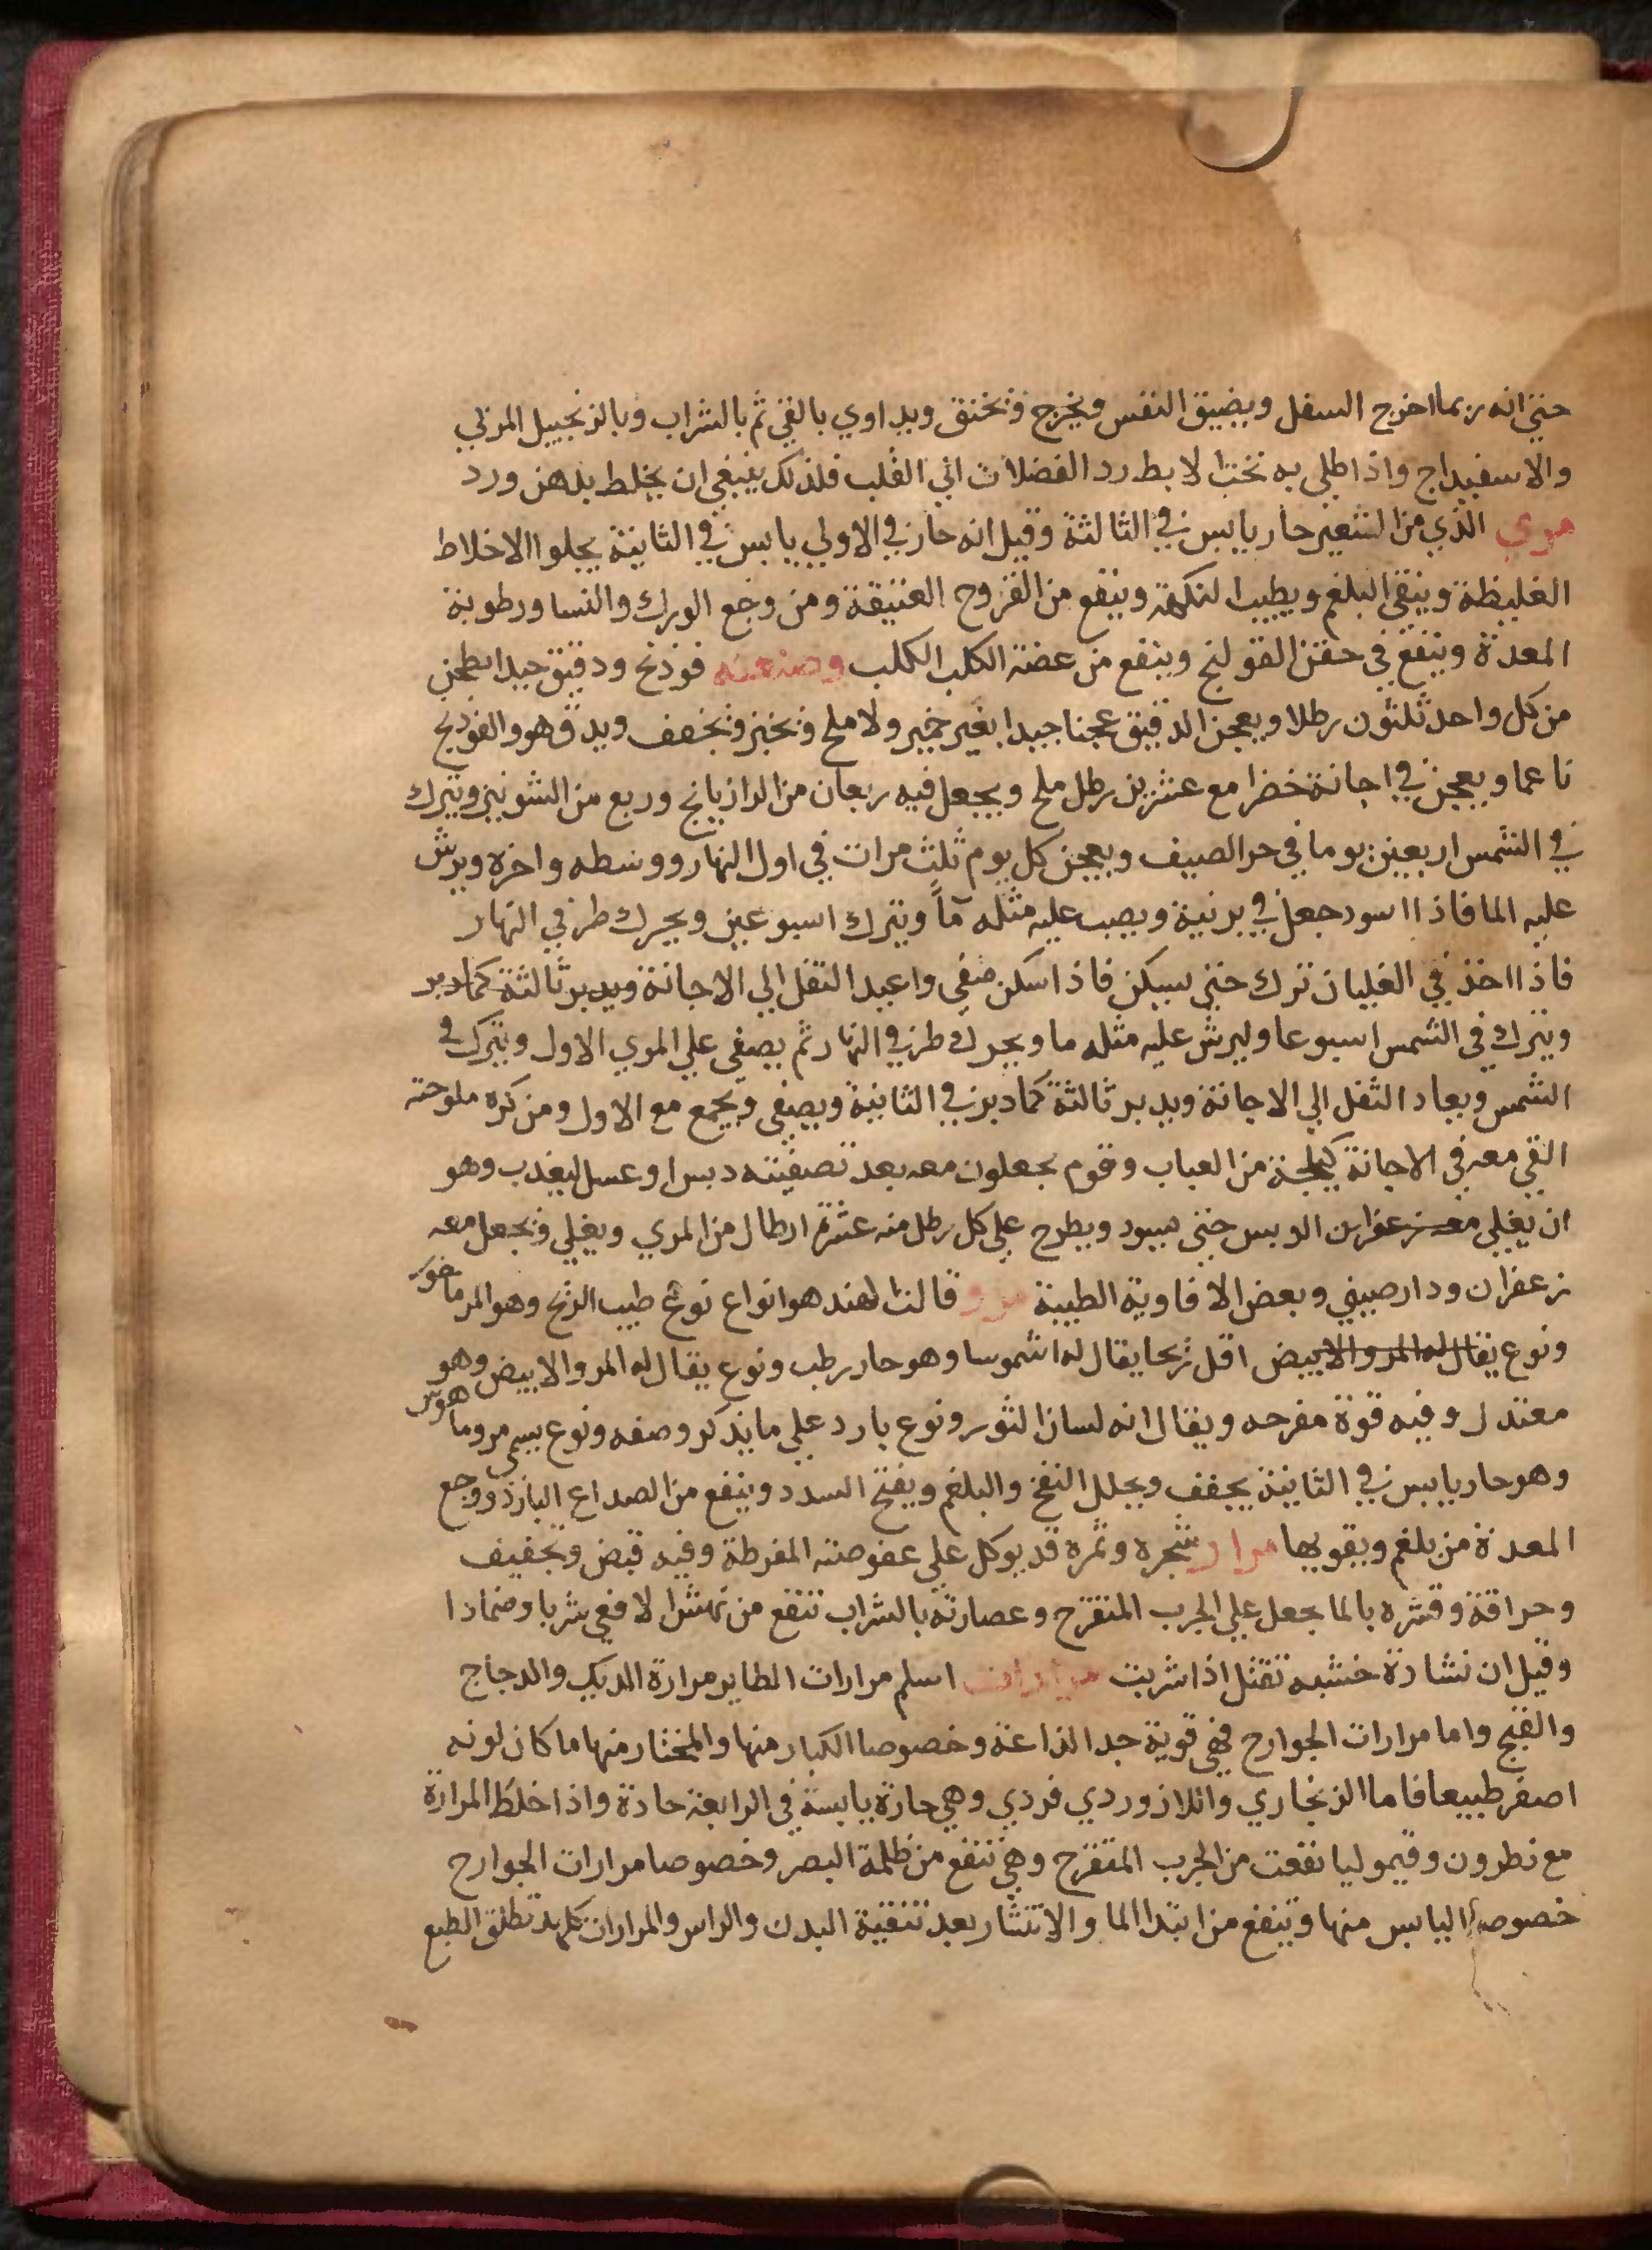 حتي انه ربما اخرج السفل ويضيق النفس ويخرج ويخنق ويداوي بالقي ثم بالشراب وبالزنجبيل المربي
والاسفيداج واذا طلي به تحت الابط رد الفضلات الي القلب فلذلك ينبغي ان يخلط بدهن ورد
مري الذي من الشعير حار يابس في الثالثة وقيل انه حار في الاولي يابس في الثانية يجلوا الاخلاط
الغليظة وينقي البلغم ويطيب النكهة وينفع من القروح العتيقة ومن وجع الورك والنسا ورطوبة
المعدة وينفع في حقن القولنج وينفع من عضة الكلب الكلب وصنعته فوذنج ودقيق جيد ايطحن
من كل واحد ثلثون رطلا ويعجن الدقيق عجنا جيدا بغير خمير ولا ملح ويخبز ويجفف ويدق هو والفوذنج
ناعما ويعجن في اجانة خضرا مع عشرين رطل ملح ويجعل فيه ربعان من الرازيانج وربع من الشونيز ويترك
في الشمس اربعين يوما في حر الصيف ويعجن كل يوم ثلث مرات في اول النهار ووسطه واخره ويرش
عليه الما فاذا اسود جعل في برنية ويصب عليه مثله مآً ويترك اسبوعين ويحرك طرفي النهار
فاذا اخذ في الغليان ترك حتي يسكن فاذا سكن صفي واعيد الثفل الي الاجانة ويدبر ثالثة كما دبر
ويترك في الشمس اسبوعا وليرش عليه مثله ما ويحرك طرفي النهار ثم يصفي علي المري الاول ويترك في
الشمس ويعاد الثفل الي الاجانة ويدبر ثالثة كما دبر في الثانية ويصفي ويجمع مع الاول ومن كره ملوحته
القي معه في الاجانة كيلجة من العباب وقوم يجعلون معه بعد تصفيته دبس او عسل ليعذب وهو
ان يغلي معه زعفران الدبس حتي يسود ويطرح علي كل رطل منه عشرة ارطال من المري ويغلي ويجعل معه
زعفران ودارصيني وبعض الافاوية الطيبة مرو قالت الهند هو انواع نوع طيب الريح وهو المرماخور
ونوع يقال له المرو الابيض اقل ريحا يقال له اشموسا وهو حار رطب ونوع يقال له المرو الابيض وهو
معتدل وفيه قوة مفرحه ويقال انه لسان الثور ونوع بارد علي ما يذكر وصفه ونوع يسمي مروماهوس
وهو حار يابس في الثانية يجفف ويحلل النفخ والبلغم ويفتح السدد وينفع من الصداع البارد ووجع
المعدة من بلغم ويقويها مران شجره وثمره قد يوكل علي عفوصته المفرطة وفيه قبض وتجفيف
وحراقة وقشره بالما يجعل علي الجرب المتقرح وعصارته بالشراب تنفع من نهش الافعي شربا وضمادا
وقيل ان نشارة خشبه تقتل اذا شربت مرارات اسلم مرارات الطاير مرارة الديك والدجاج
والقبج واما مرارات الجوارح فهي قوية جدا لذاعة وخصوصا الكبار منها والمختار منها ما كان لونه
اصفر طبيعا فاما الزنجاري واللازوردي فردي وهي حارة يابسة في الرابعة حادة واذا خلط المرارة
مع نطرون وقيموليا نفعت من الجرب المتقرح وهي تنفع من ظلمة البصر وخصوصا مرارات الجوارح
خصوصا اليابس منها وتنفع من ابتدا الما والانتشار بعد تنقية البدن والراس والمرارات كلها تطلق الطبع